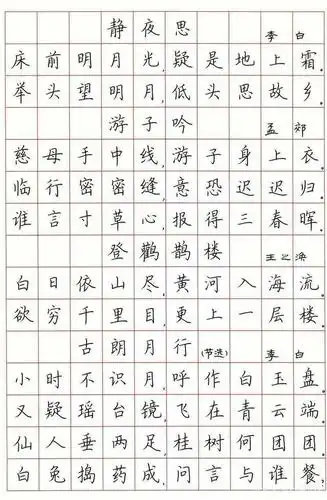 静夜思 李白
床前明月光,疑是地上霜.
举头望明月,低头思故乡.
游子吟 孟郊
慈母手中线,游子身上衣.
临行密密缝,意恐迟迟归.
谁言寸草心,报得三春晖.
登鹳鹊楼 王之涣
白日依山尽,黄河入海流.
欲穷千里目,更上一层楼.
古朗月行(节选) 李白
小时不识月,呼作白玉盘.
又疑瑶台镜,飞在青云端.
仙人垂两足,桂树何团团.
白兔捣药成,问言与谁餐,